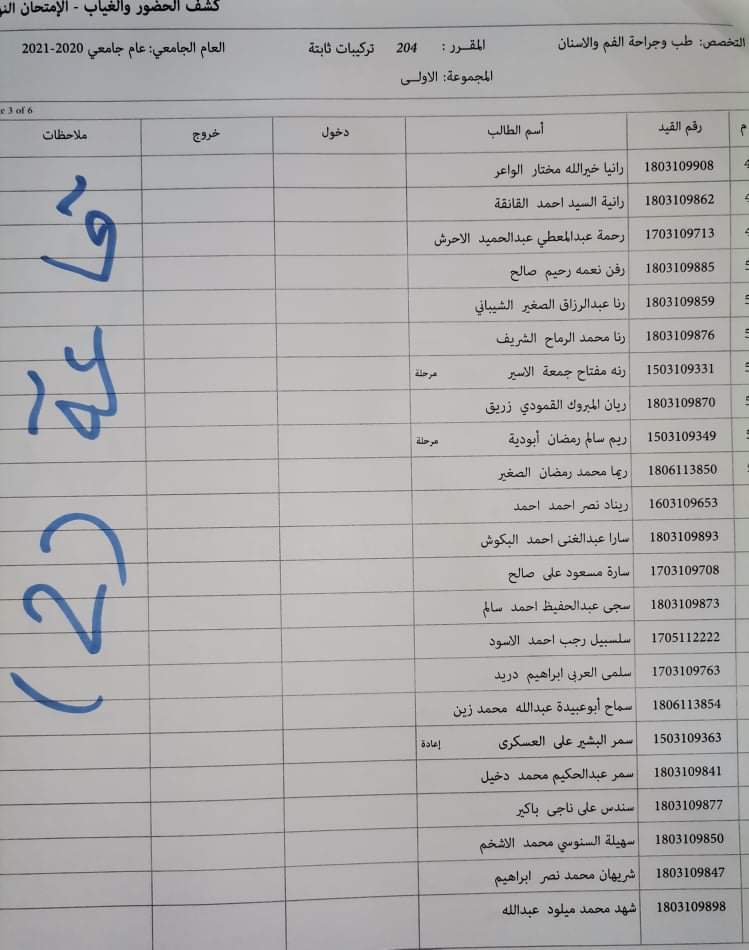 كشف الحضور والغياب - الإمتحان
التخصص: طب وجراحة الفم والاسنان المقــرر : 204 تركيبات ثابتة العام الجامعي: عام جامعي 2020-2021
المجموعة: الاولــى
e 3 of 6
م رقم القيد أسم الطالب دخول خروج ملاحظات
1803109908 رانيا خيرالله مختار الواعر
1803109862 رانية السيد احمد القانقة
1703109713 رحمة عبدالمعطي عبدالحميد الاحرش
1803109885 رفن نعمه رحيم صالح
1803109859 رنا عبدالرزاق الصغير الشيباني
1803109876 رنا محمد الرماح الشريف
1503109331 رنه مفتاح جمعة الاسير مرحلة
1803109870 ريان المبروك القمودي زريق
1503109349 ريم سالم رمضان أبودية مرحلة
1806113850 ريما محمد رمضان الصغير
1603109653 ريناد نصر احمد احمد
1803109893 سارا عبدالغنى احمد البكوش
1703109708 سارة مسعود على صالح
1803109873 سجى عبدالحفيظ احمد سالم
1705112222 سلسبيل رجب احمد الاسود
1703109763 سلمى العربى ابراهيم دريد
1806113854 سماح أبوعبيدة عبدالله محمد زين
1503109363 سمر البشير على العسكرى إعادة
1803109841 سمر عبدالحكيم محمد دخيل
1803109877 سندس على ناجى باكير
1803109850 سهيلة السنوسي محمد الاشخم
1803109847 شريهان محمد نصر ابراهيم
1803109898 شهد محمد ميلود عبدالله
(2)